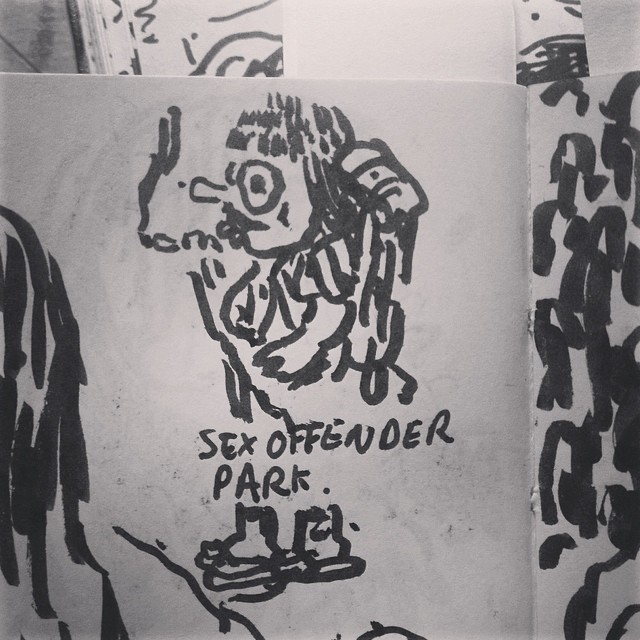 SEX OFFENDER
PARK.